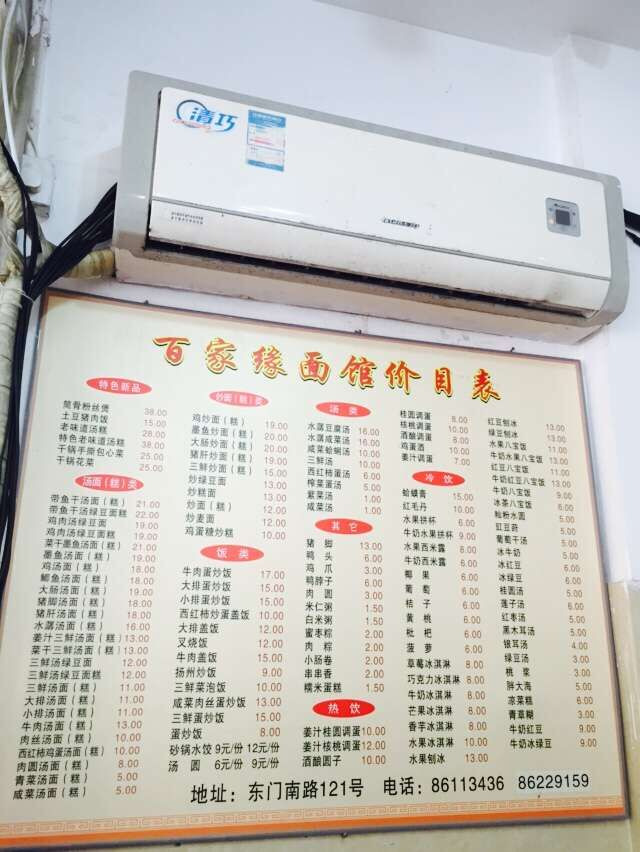 清巧
百家缘面馆价目表
特色新品
筒骨粉丝煲 38.00
土豆猪肉饭 15.00
老味道汤糕 28.00
特色老味道汤糕 38.00
干锅手撕包心菜 25.00
干锅花菜 25.00
汤面（糕）类
带鱼干汤面（糕）21.00
带鱼干汤绿豆面 22.00
鸡肉汤绿豆面 19.00
鸡肉汤面（糕）19.00
菜干墨鱼汤面（糕）
鸡汤面（糕）
鲫鱼汤面（糕）
大肠汤面（糕）
猪脚汤面（糕）
猪肝汤面（糕）
水潺汤面（糕）16.00
姜汁三鲜汤面（糕）13.00
菜干三鲜汤面（糕）13.00
三鲜汤绿豆面 12.00
三鲜汤绿豆面糕 12.00
三鲜汤面（糕）11.00
大排汤面（糕）11.00
小排汤面（糕）11.00
牛肉汤面（糕）13.00
肉丝汤面（糕）10.00
西红柿鸡蛋汤面（糕）10.00
肉圆汤面（糕）8.00
青菜汤面（糕）5.00
咸菜汤面（糕）5.00
炒面（糕）类
鸡炒面（糕）19.00
墨鱼炒面（糕）20.00
大肠炒面（糕）20.00
猪肝炒面（糕）19.00
三鲜炒面（糕）15.00
炒绿豆面 13.00
炒糕面 13.00
炒面（糕）12.00
炒麦面 12.00
鸡蛋糖炒糕 10.00
饭类
牛肉蛋炒饭 17.00
大排蛋炒饭 15.00
小排蛋炒饭 15.00
西红柿炒蛋盖饭 10.00
大排盖饭 12.00
叉烧饭 12.00
牛肉盖饭 15.00
扬州炒饭 10.00
三鲜菜泡饭 10.00
咸菜肉丝蛋炒饭 13.00
三鲜蛋炒饭 15.00
蛋炒饭 8.00
砂锅水饺 9元/份 12元/份
汤圆 6元/份 9元/份
汤类
水潺豆腐汤 16.00
水潺咸菜汤 16.00
咸菜蛤蜊汤 10.00
三鲜汤 10.00
西红柿蛋汤 6.00
榨菜蛋汤 5.00
紫菜汤 4.00
咸菜汤 1.00
其它
猪脚 13.00
鸭头 6.00
鸡爪 3.00
鸭脖子 6.00
肉圆 3.00
米仁粥 1.50
白米粥 1.50
蜜枣粽 4.00
肉粽 4.00
小肠卷 2.00
串串香 2.00
糯米蛋糕 1.50
热饮
姜汁桂圆调蛋 10.00
姜汁核桃调蛋 12.00
酒酿圆子 10.00
桂圆调蛋 8.00
核桃调蛋 9.00
酒酿调蛋 8.00
鸡蛋酒 10.00
姜汁调蛋 7.00
冷饮
蛤蟆膏 15.00
红毛丹 10.00
水果拼杯 6.00
牛奶水果拼杯 9.00
水果西米露 6.00
牛奶西米露 6.00
椰果 6.00
葡萄 6.00
桔子 6.00
黄桃 6.00
枇杷 6.00
菠萝 6.00
草莓冰淇淋 10.00
巧克力冰淇淋 10.00
牛奶冰淇淋 10.00
芒果冰淇淋 10.00
香芋冰淇淋 10.00
水果冰淇淋 10.00
水果刨冰 13.00
红豆刨冰 13.00
绿豆刨冰 13.00
水果八宝饭 9.00
牛奶水果八宝饭 13.00
红豆八宝饭 11.00
牛奶红豆八宝饭 13.00
牛奶八宝饭 9.00
冰茶八宝饭 9.00
籼粉水圆 5.00
豇豆莳 6.00
葡萄干汤 5.00
冰牛奶 5.00
冰红豆 6.00
冰绿豆 6.00
桂圆汤 5.00
莲子汤 6.00
红枣汤 5.00
黑木耳汤 5.00
银耳汤 4.00
绿豆汤 3.00
桃浆 3.00
胖大海 5.00
凉菜糕 6.00
青草糊 3.00
牛奶红豆 9.00
牛奶冰绿豆 9.00
地址：东门南路121号 电话：86113436 86229159